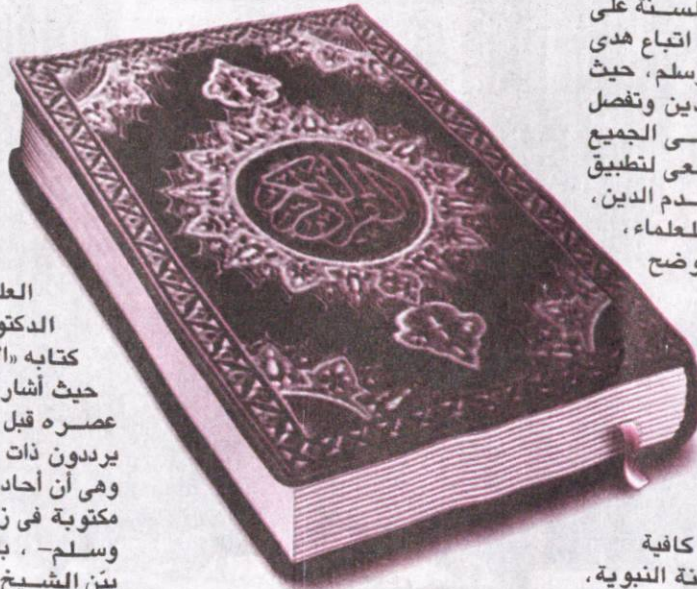 لسنة على
اتباع هدى
سلم، حيث
دين وتفصل
ـى الجميع
عى لتطبيق
دم الدين،
لعلماء،
وضح
كافية
نة النبوية،
العل
الدكتو
كتابه «ا
حيث أشار
عصره قبل
يرددون ذات
وهى أن أحاد
مكتوبة فى ز
وسلم– ، ب
بيّن الشيخ
القرآن الكريم